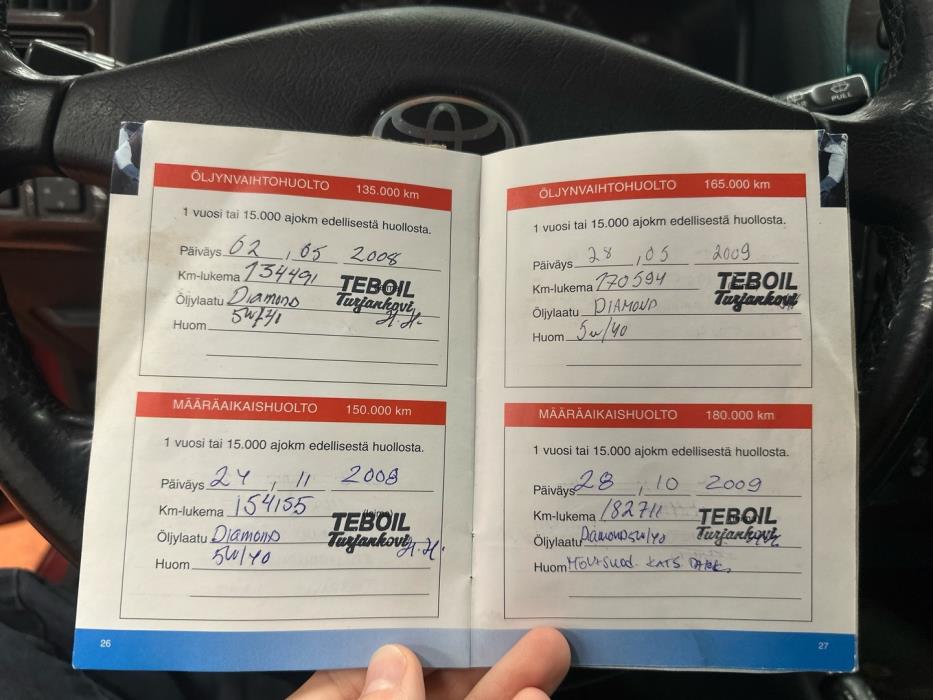 ÖLJYNVAIHTOHUOLTO 135.000 km
1 vuosi tai 15.000 ajokm edellisestä huollosta.
Päiväys 02 , 05 2008
Km-lukema 134491
Öljylaatu Diamond
5W/41
Huom
TEBOIL
Turjankovi
H.H.
MÄÄRÄAIKAISHUOLTO 150.000 km
1 vuosi tai 15.000 ajokm edellisestä huollosta.
Päiväys 24 , 11 2008
Km-lukema 154155
Öljylaatu Diamond
5W/40
Huom
TEBOIL
Turjankovi
H.H.
26
ÖLJYNVAIHTOHUOLTO 165.000 km
1 vuosi tai 15.000 ajokm edellisestä huollosta.
Päiväys 28 , 05 2009
Km-lukema 170594
Öljylaatu DIAMOND
Huom 5w/40
TEBOIL
Turjankovi
MÄÄRÄAIKAISHUOLTO 180.000 km
1 vuosi tai 15.000 ajokm edellisestä huollosta.
Päiväys 28 , 10 2009
Km-lukema 182711
Öljylaatu Diamond 5w/40
Huom KATS
TEBOIL
Turjankovi
27
PULL